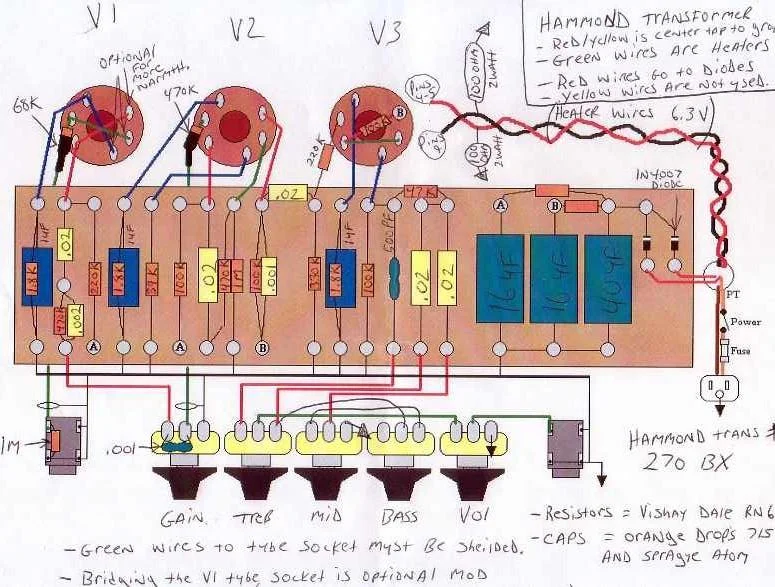 V1
V2
V3
HAMMOND TRANSFORMER
- Red/yellow is center tap to
- Green wires Are Heaters
- Red wires Go to Diodes
- Yellow wires Are Not used.
(Heater wires 6.3V)
OPTIONAL
FOR
MORE
WARMTH.
68K
470K
220K
100K
B
Pins
4-5
Pin
100 OHM
2WATT
100
OHM
2WATT
IN4007
DIODE
.02
47K
A
B
1.8K
.02
470K
.002
220K
A
1.8K
39K
100K
A
.02
470K
1M
100K
.001
B
330K
1.8K
100K
500PF
.02
.02
16uF
16uF
40uF
PT
Power
Fuse
1M
.001
GAIN
TREB
MID
BASS
VOl
HAMMOND TRANS #
270 BX
- Resistors = Vishay Dale RN6
- CAPS = orange Drops 715
AND SprAgue Atom
- Green wires to tube socket must Be sheilded.
- Bridging the V1 tube socket is optional mod